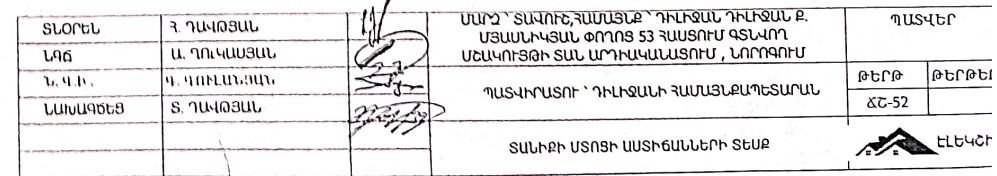 ՏՆՕՐԵՆ Հ. ԴԱՎԹՅԱՆ
ՆԳՃ Ա. ՂՈՒԿԱՍՅԱՆ
Ն.Գ.Ի. Գ. ԳՈՒԼԱՆՅԱՆ
ՆԱԽԱԳԾԵՑ Տ. ԴԱՎԹՅԱՆ
ՄԱՐԶ՝ ՏԱՎՈՒՇ,ՀԱՄԱՅՆՔ՝ ԴԻԼԻՋԱՆ ԴԻԼԻՋԱՆ Ք.
ՄՅԱՍՆԻԿՅԱՆ ՓՈՂՈՑ 53 ՀԱՍՏՈՒՄ ԳՏՆՎՈՂ
ՄՇԱԿՈՒՅԹԻ ՏԱՆ ԱՐԴԻԱԿԱՆԱՑՈՒՄ , ՆՈՐՈԳՈՒՄ
ՊԱՏՎԻՐԱՏՈՒ՝ ԴԻԼԻՋԱՆԻ ՀԱՄԱՅՆՔԱՊԵՏԱՐԱՆ
ՏԱՆԻՔԻ ՄՏՈՑԻ ԱՍՏԻՃԱՆՆԵՐԻ ՏԵՍՔ
ՊԱՏՎԵՐ
ԹԵՐԹ ԹԵՐԹԵՐ
ՃՇ-52
ԷԼԵԿՇԻ